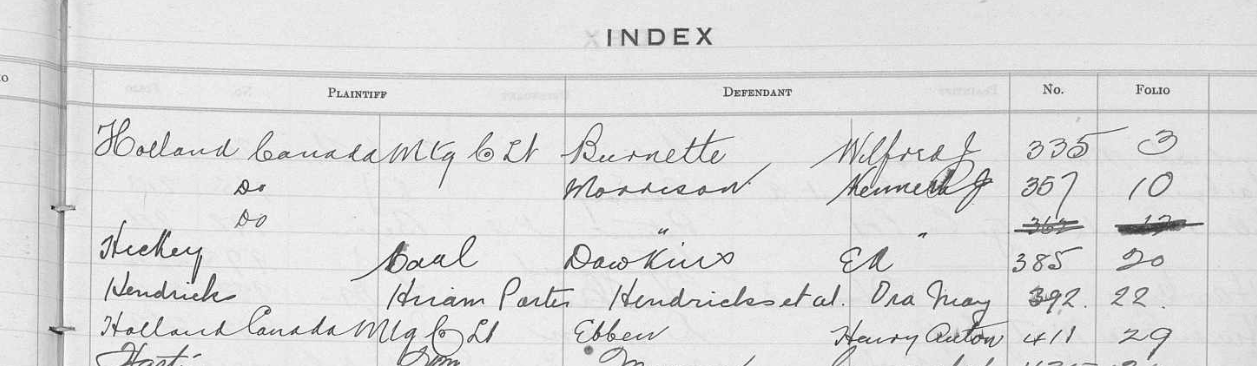 INDEX
PLAINTIFF DEFENDANT No. FOLIO
Holland Canada Mtg Co Lt Burnette, Wilfred J 335 3
Do Morrison Kenneth J 357 10
Do " "
Hickey Dawkins Ed 385 20
Hendricks Hiram Porter Hendricks et al. Ora May 392. 22.
Holland Canada Mtg Co Lt Ebben Henry Anton 411 29
Hart